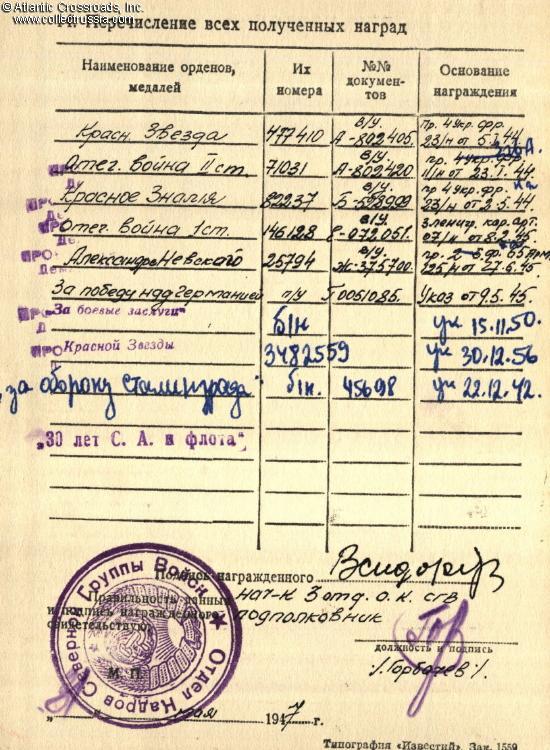 © Atlantic Crossroads, Inc.
www.collectrussia.com
Перечисление всех полученных наград
Наименование орденов, медалей
Их номера
№№ документов
Основание награждения
Красн. Звезда 477410 в/у. А-802405. Пр. 4 Укр. фр. 23/н от 5.1.44
Отеч. война II ст. 71031 в/у. А-802420 пр. 11/н от 23.1.44.
Красное Знамя 82237 в/у. Б-528999 пр 4 Укр. фр. 23/н от 2.5.44
Отеч. война 1 ст. 146128 в/у. Е-072051.
Александр Невского 25794 в/у. Ж-375700 от 27.6.45
За победу над германией п/у Г 0051085. Указ от 9.5.45.
"За боевые заслуги" б/н ук 15.11.50.
Красной Звезды 3482559 ук 30.12.56
"за оборону Сталинграда" б/н. 45698 ук 22.12.42.
„30 лет С. А. и флота"
Подпись награжденного
Правильность данных и подпись награжденного свидетельствую:
нач-к 3 отд. о.к. сгв
подполковник
должность и подпись
/Горбачев/.
М. П.
Отдел Кадров Северной Группы Войск
мая 1947 г.
Типография «Известий». Зак. 1559